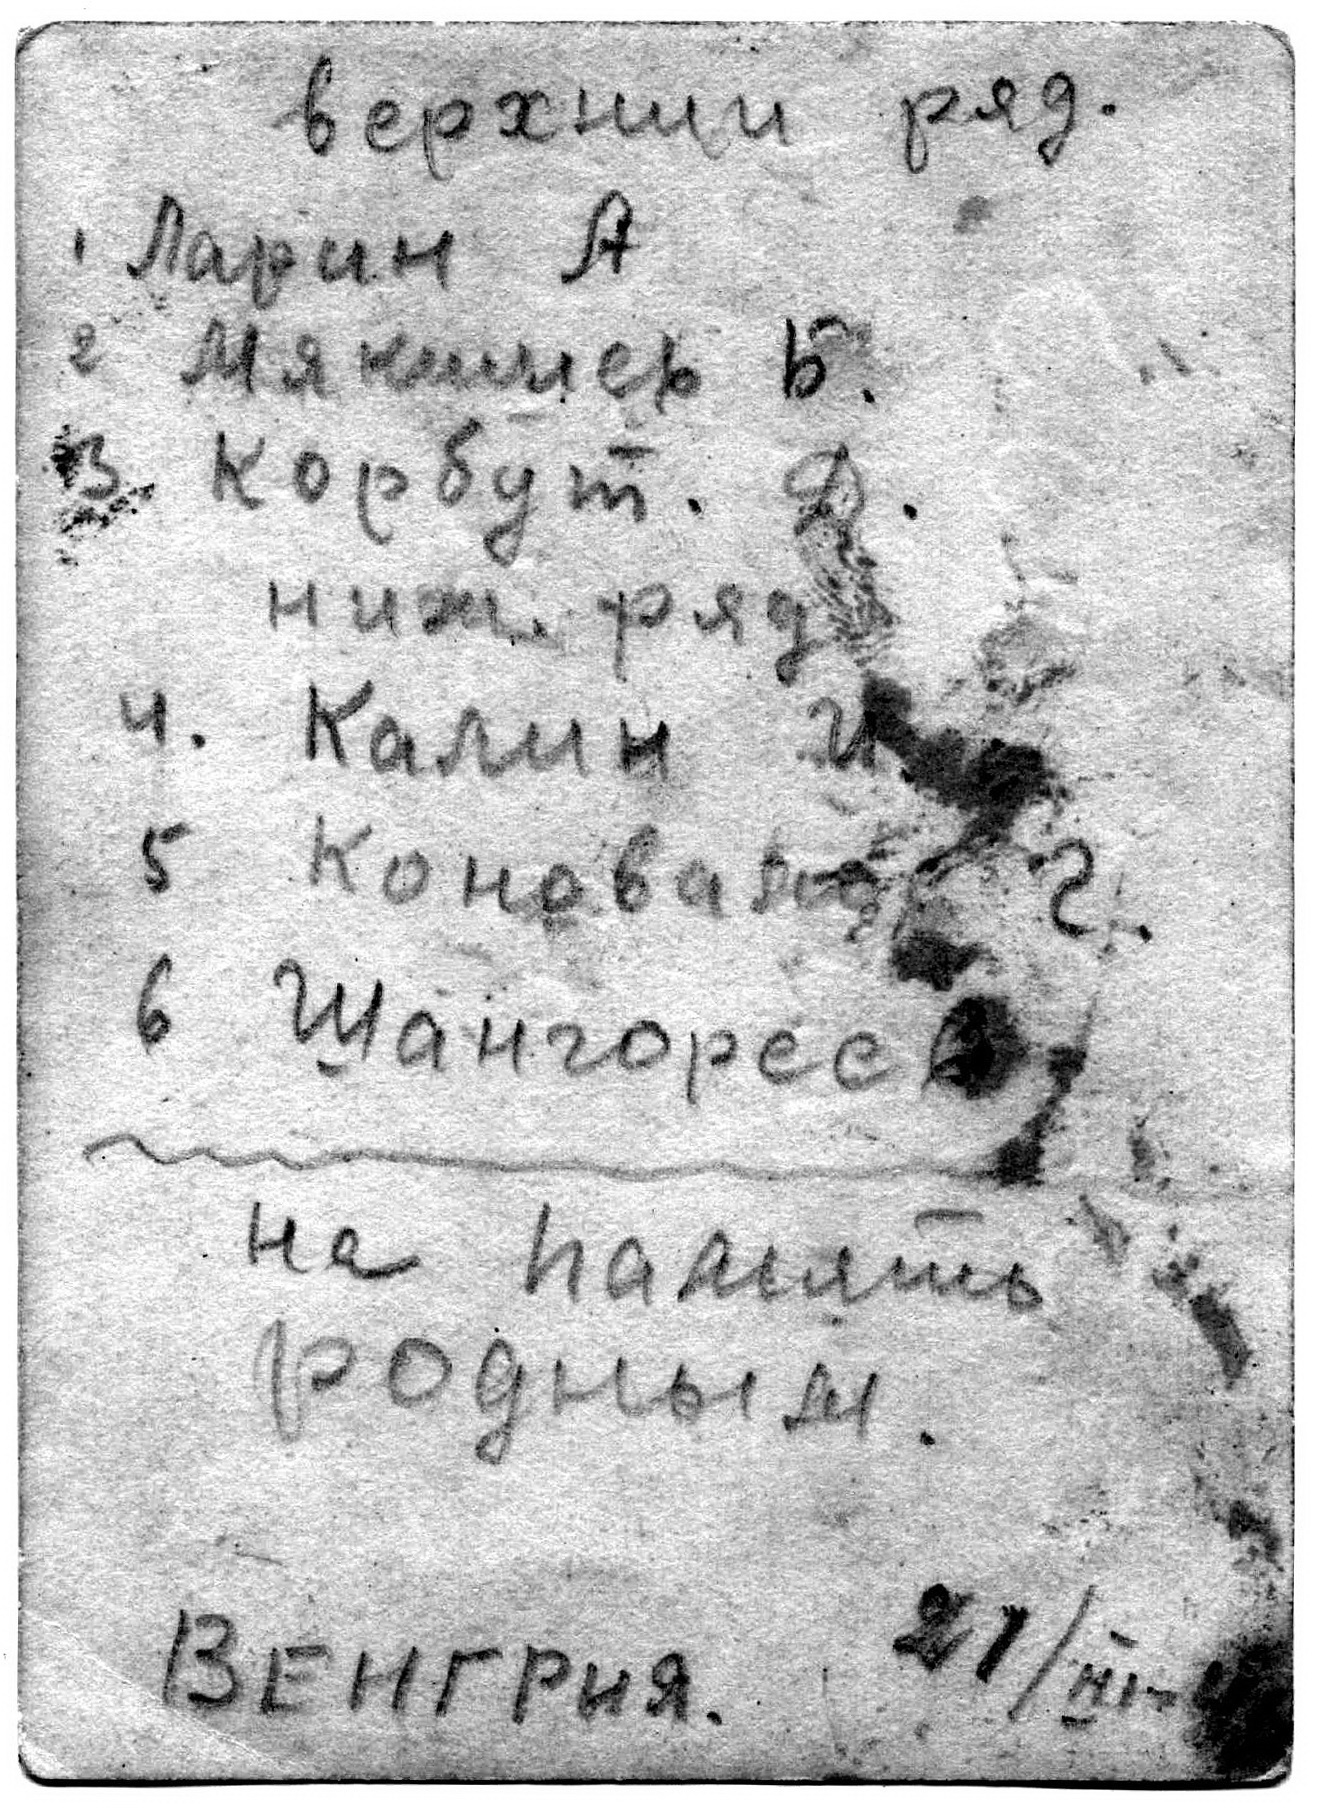 верхнии ряд.
1 Ларин А
2 Мякишев Б.
3 Корбут. Д.
ниж. ряд
4. Калин И.
5 Коновалов Г.
6 Шангореев
на память
родным.
ВЕНГРИЯ. 21/III-